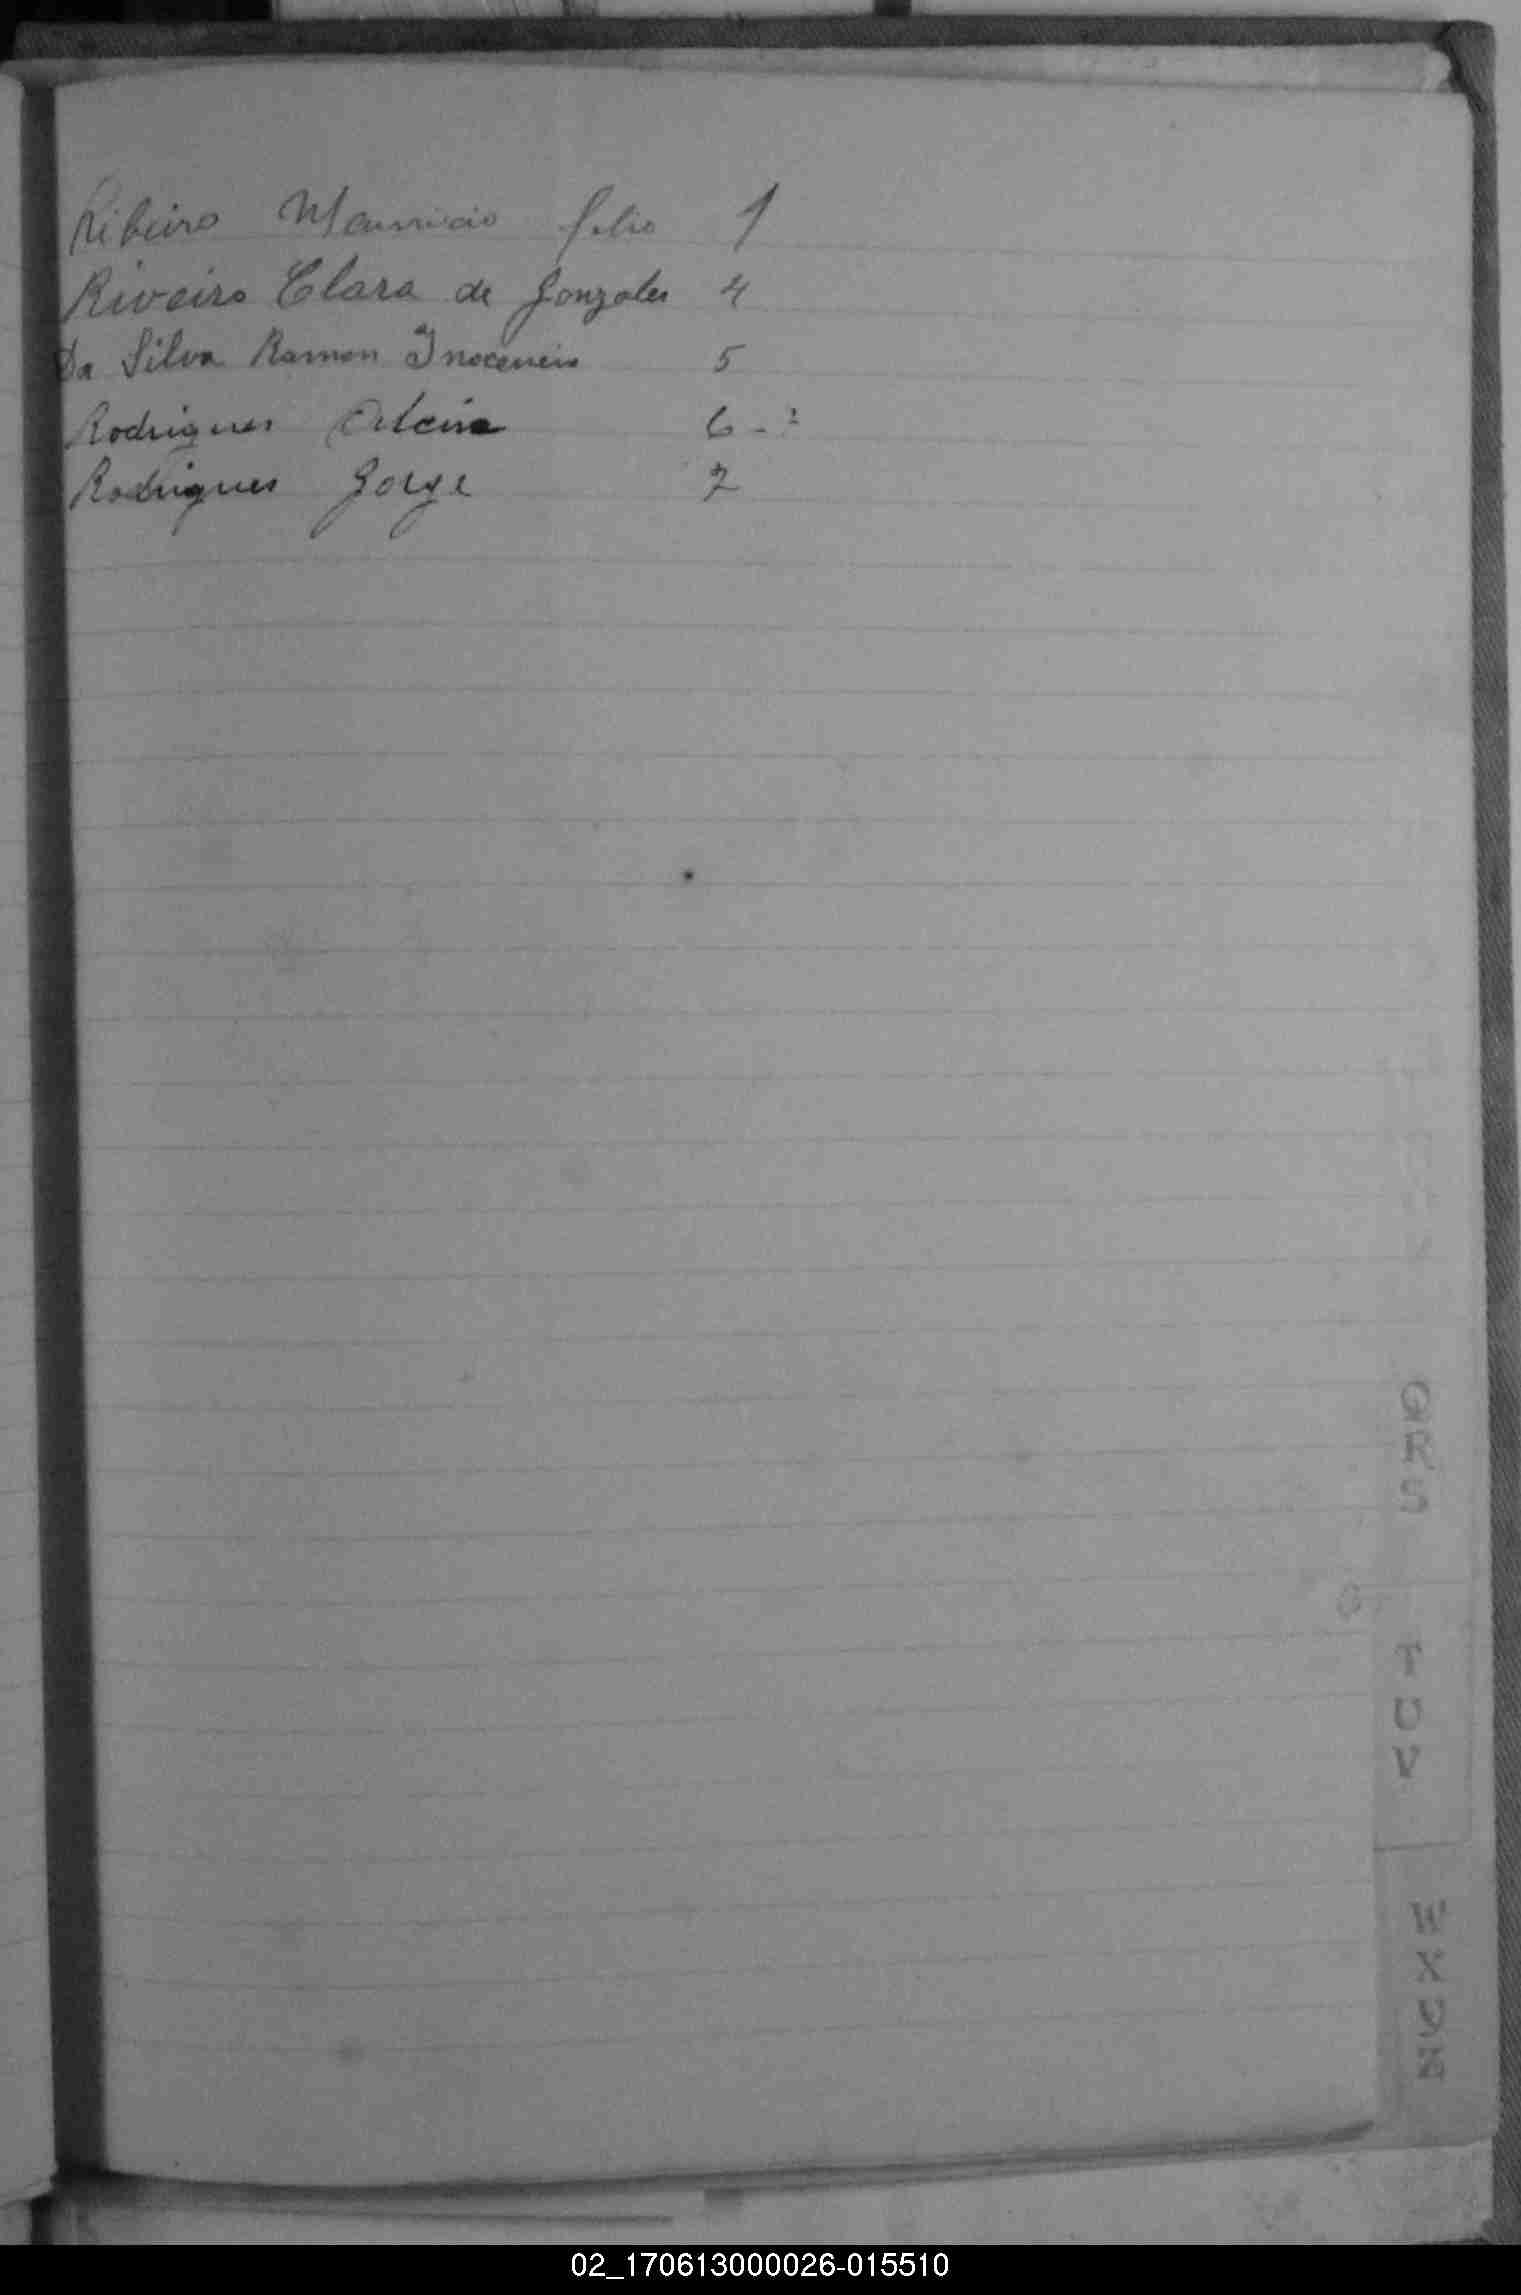 Ribeiro Mauricio folio 1
Riveiro Clara de Gonzales 4
Da Silva Ramon Inocencio 5
Rodrigues 6
Rodrigues Jorge 7
Q
R
S
T
U
V
W
X
Y
Z
02_170613000026-015510